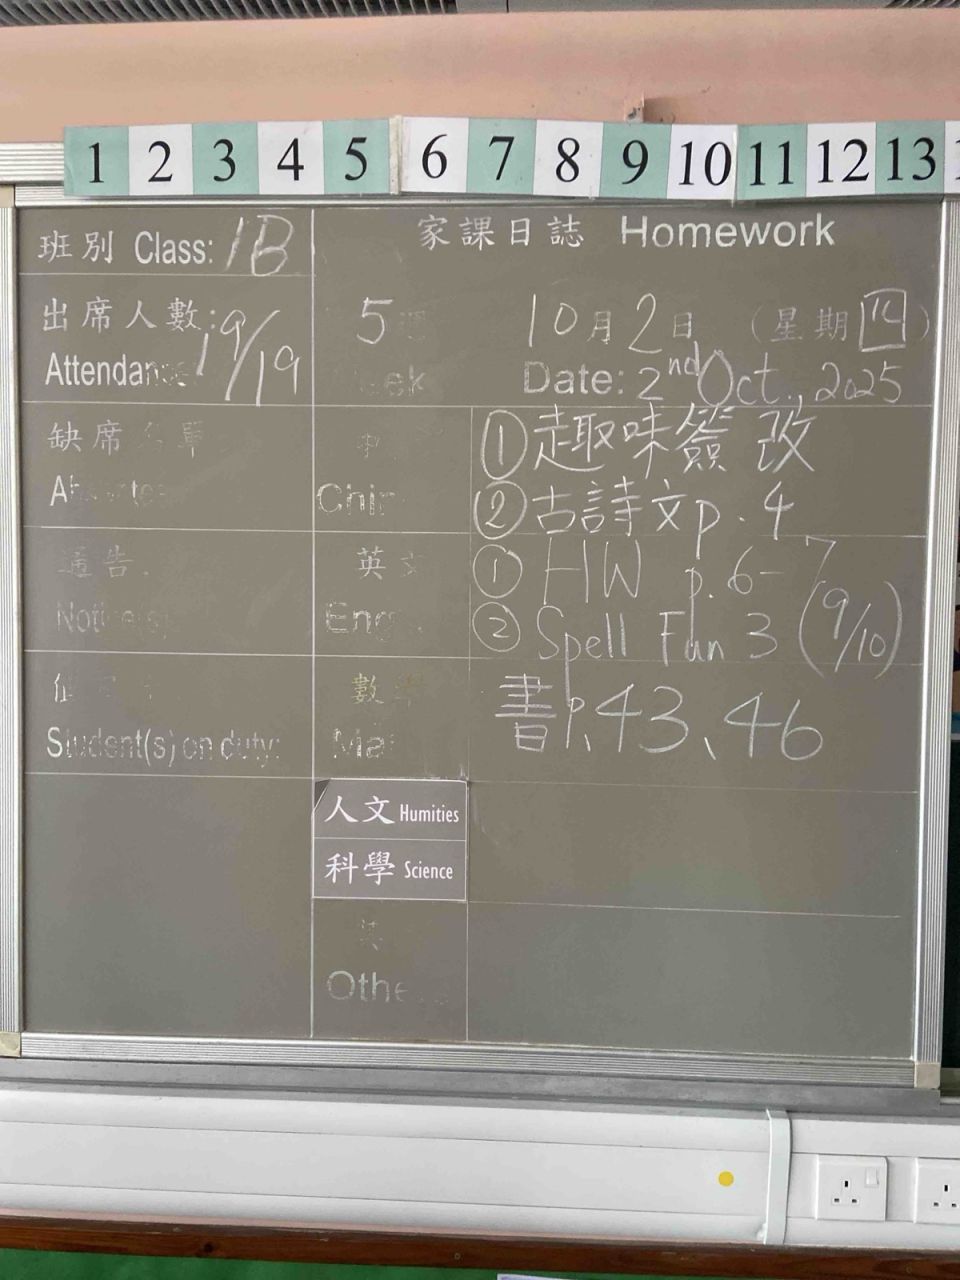 1 2 3 4 5 6 7 8 9 10 11 12 13
班別 Class: 1B
家課日誌 Homework
出席人數: 19/19
5
10月2日 (星期四)
Date: 2nd Oct., 2025
缺席
① 趣味簽改
② 古詩文 p.4
通告
英文
① HW p.6-7
② Spell Fun 3 (9/10)
Student(s) on duty:
數學
書p.43、46
人文 Humities
科學 Science